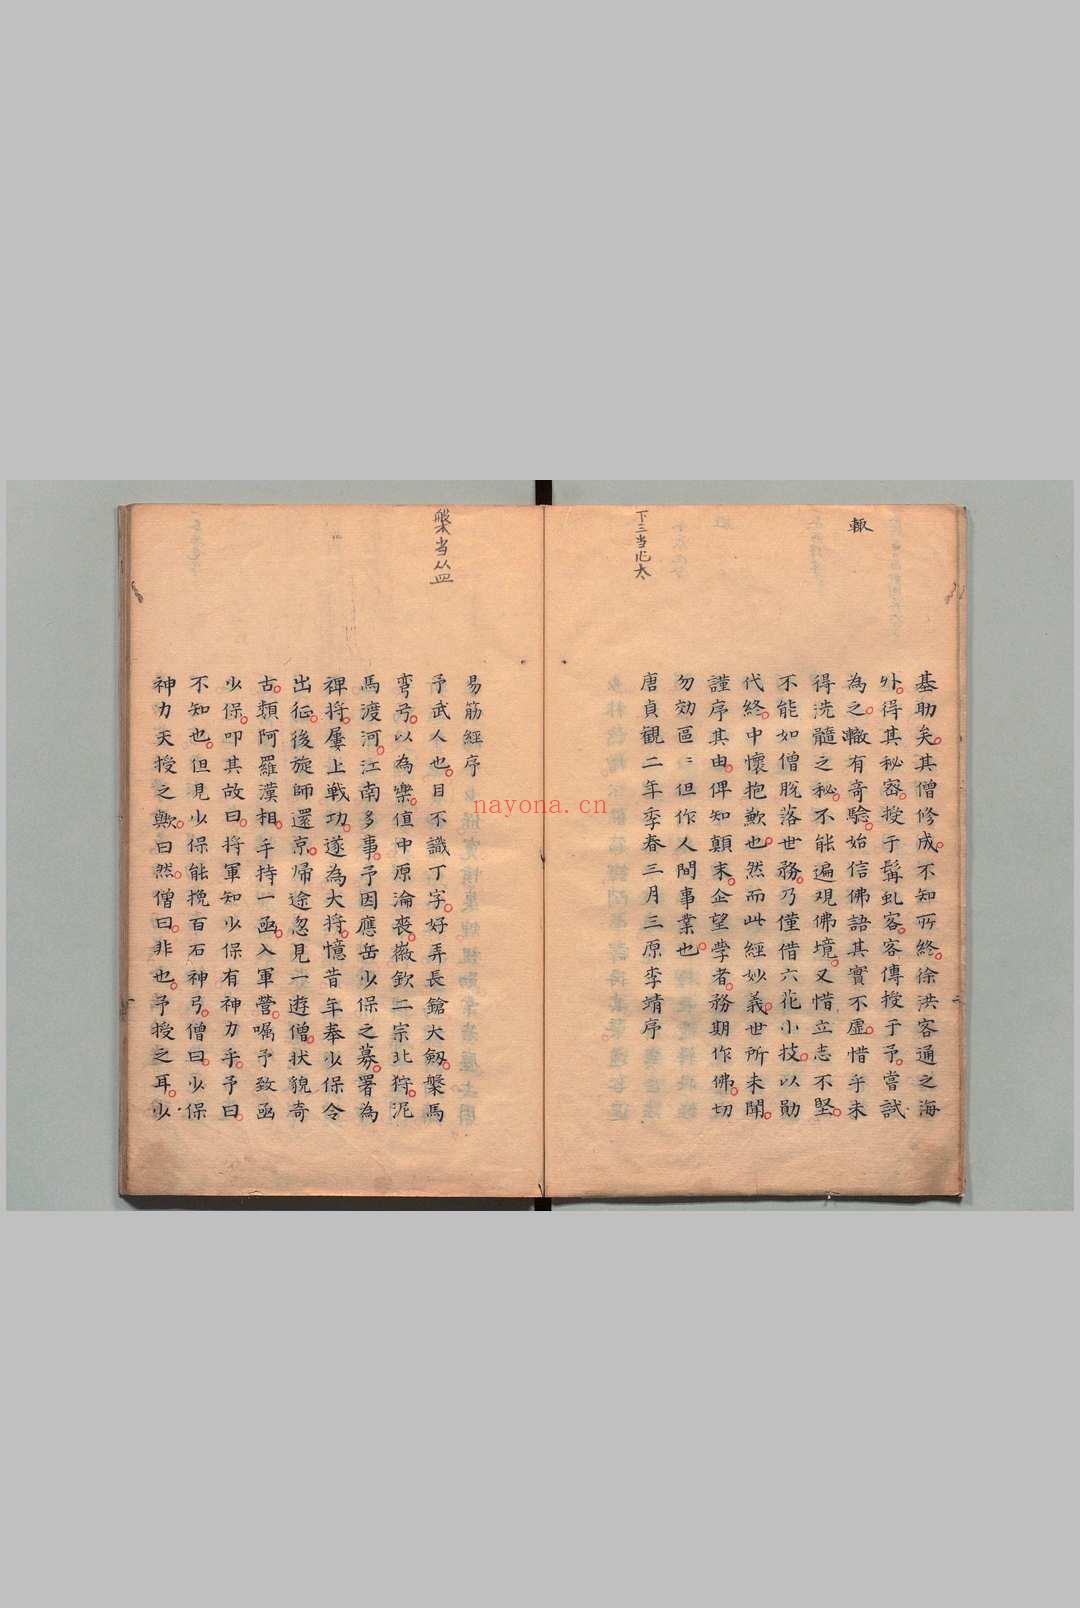 輙
基助矣其僧修成不知所終徐洪客遍之海
外得其秘密授于髯虬客客傳授于予嘗試
為之轍有奇驗始信佛語其實不虛惜乎未
得洗髓之秘不能遍观佛境又惜立志不堅
不能如僧脫落世務乃僅借六花小技以勛
代終中懷抱歉也然而此經妙義世所未聞
謹序其由俾知顛末企望学者務期作佛切
勿効區〻但作人間事業也
下三当心太
唐貞観二年季春三月三原李靖序
易筋經序
槃当从皿
予武人也目不識丁字好弄長鎗大劔槃馬
彎弓以為樂值中原淪喪徽欽二宗北狩泥
馬渡河江南多事予因應岳少保之募署為
裨将屢上戦功遂為大将憶昔年奉少保令
出征後旋師還京帰途忽見一遊僧状貌奇
古類阿羅漢相手持一函入軍營嘱予致函
少保叩其故曰将軍知少保有神力乎予曰
不知也但見少保能挽百石神弓僧曰少保
神力天授之歟曰然僧曰非也予授之耳少
nayona.cn